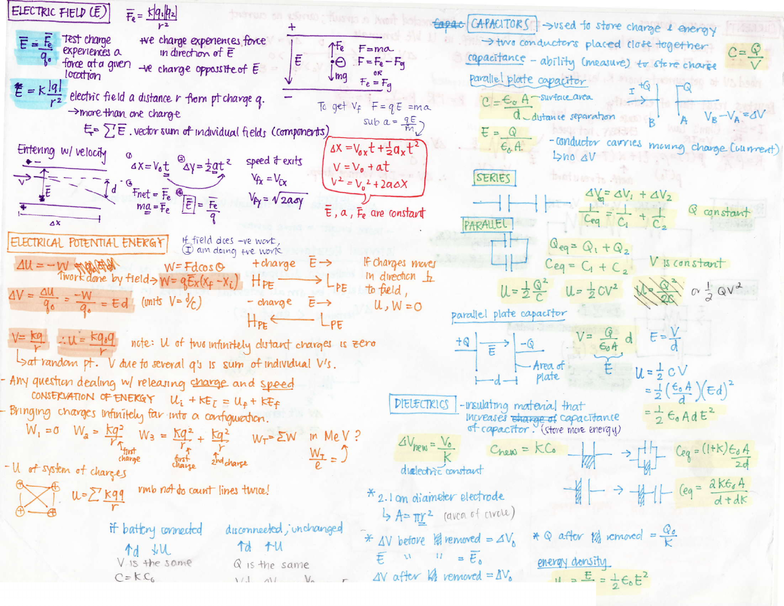 ELECTRIC FIELD (E)
Fe = k|q1||q2| / r²
E = Fe / q0
Test charge experiences a force at a given location
+ve charge experiences force in direction of E
-ve charge opposite of E
E = k|q| / r²
electric field a distance r from pt charge q.
→ more than one charge
E = ΣE. vector sum of individual fields (components)
+
E
Fe
mg
-
F = ma
F = Fe - Fg
or
Fe = Fg
To get Vf F = qE = ma
sub a = qE/m
Entering w/ velocity
V
E
d
Δx
① Δx = V0x t
② Δy = ½at²
③ Fnet = Fe
ma = Fe
E = Fe/q
speed it exits
Vfx = Vix
Vfy = √2aΔy
Δx = V0x t + ½ax t²
V = V0 + at
V² = V0² + 2aΔx
E, a, Fe are constant
ELECTRICAL POTENTIAL ENERGY
if field does -ve work,
I am doing +ve work
ΔU = -W
work done by field →
W = Fd cosθ
W = qEx(Xf - Xi)
ΔV = ΔU/q0 = -W/q0 = Ed (units V = J/C)
+ charge E →
HPE → LPE
- charge E →
HPE ← LPE
if charges moves
in direction ⊥
to field,
U, W = 0
V = kq/r
∴ U = kq0q/r
note: U of two infinitely distant charges is zero
↳ at random pt. V due to several q's is sum of individual V's.
- Any question dealing w/ releasing charge and speed
CONSERVATION OF ENERGY Ui + KEi = Uf + KEf
- Bringing charges infinitely far into a configuration.
W1 = 0 W2 = kq²/r W3 = kq²/r + kq²/r WT = ΣW in MeV?
first charge
first charge
2nd charge
WT/e =
- U of system of charges
U = Σ kqq/r
rmb not do count lines twice!
if battery connected
↑d ↓U
V is the same
C = KC0
disconnected, unchanged
↑d ↑U
Q is the same
CAPACITORS → used to store charge & energy
→ two conductors placed close together
C = Q/V
capacitance - ability (measure) to store charge
parallel plate capacitor
C = ε0A/d
surface area
distance separation
E = Q/ε0A
I +Q -Q
B A
VB - VA = ΔV
- conductor carries moving charge (current)
↳ no ΔV
SERIES
ΔVS = ΔV1 + ΔV2
1/Ceq = 1/C1 + 1/C2
Q constant
PARALLEL
Qeq = Q1 + Q2
Ceq = C1 + C2
V is constant
U = ½ Q²/C U = ½CV²
or ½ QV²
parallel plate capacitor
+Q E -Q
d
Area of plate
V = Q/ε0A d
E
E = V/d
U = ½CV
= ½(ε0A/d)(Ed)²
= ½ε0AdE²
DIELECTRICS - insulating material that
increases charge of capacitance
of capacitor. (store more energy)
ΔVnew = V0/K
dielectric constant
Cnew = KC0
Ceq = (1+K)ε0A / 2d
Ceq = 2Kε0A / d+dK
* 2.1 cm diameter electrode
↳ A = πr² (area of circle)
* ΔV before removed = ΔV0
E " " = E0
ΔV after removed = ΔV0
* Q after removed = Q0/K
energy density
= ½ε0E²